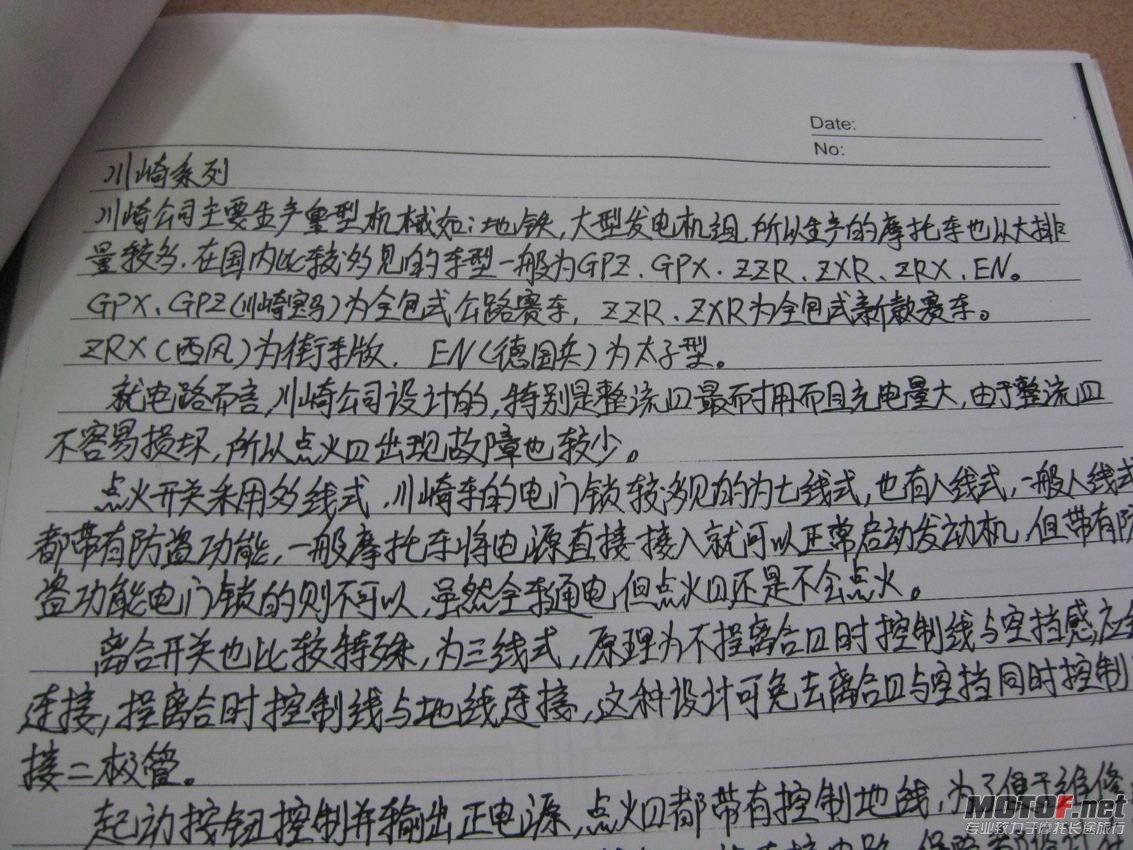 Date:
No:
川崎系列
川崎公司主要生产重型机械如:地铁,大型发电机组,所以生产的摩托车也以大排
量较多.在国内比较多见的车型一般为GPZ、GPX、ZZR、ZXR、ZRX、EN。
GPX、GPZ(川崎宝马)为全包式公路赛车,ZZR、ZXR为全包式新款赛车。
ZRX(西风)为街车版.EN(德国兵)为太子型。
就电路而言,川崎公司设计的,特别是整流口最耐用而且充电量大,由于整流口
不容易损坏,所以点火口出现故障也较少。
点火开关采用多线式.川崎车的电门锁较多见的为七线式,也有八线式,一般八线式
都带有防盗功能,一般摩托车将电源直接接入就可以正常启动发动机,但带有防
盗功能电门锁的则不可以,虽然全车通电,但点火口还是不会点火。
离合开关也比较特殊,为三线式,原理为不捏离合口时控制线与空挡感应
连接,捏离合时控制线与地线连接,这种设计可免去离合口与空挡同时控制
接二极管。
起动按钮控制并输出正电源,点火口都带有控制地线,为了便于维修
MOTOF.net
专业致力于摩托长途旅行